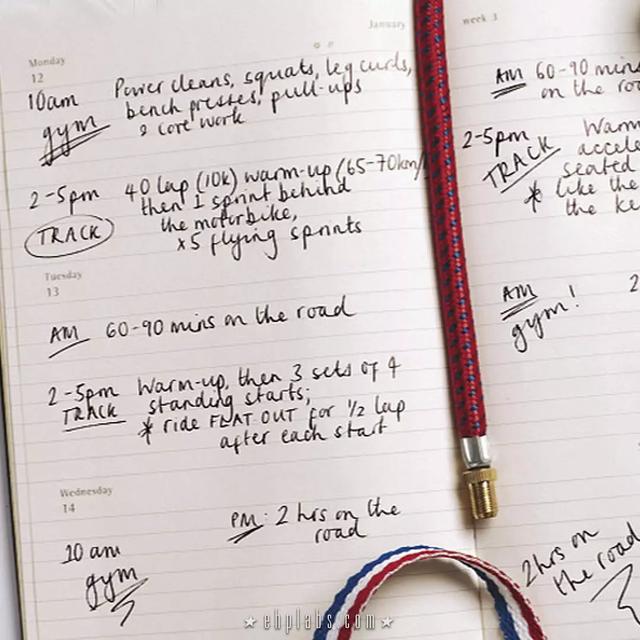 January
Monday
12
10am
gym
Power cleans, squats, leg curls,
bench presses, pull-ups
& core work
2-5pm
TRACK
40 lap (10k) warm-up (65-70km/
then I sprint behind
the motorbike,
x5 flying sprints
Tuesday
13
AM 60-90 mins on the road
2-5pm
TRACK
Warm-up, then 3 sets of 4
standing starts;
* ride FLAT OUT for 1/2 lap
after each start
Wednesday
14
10 am
gym
PM: 2 hrs on the
road
week 3
AM 60-90 mins
on the roa
2-5pm
TRACK
Warm
accele
seated
* like the
the ke
AM
gym!
2
2hrs on
the road
★ ehplabs.com ★